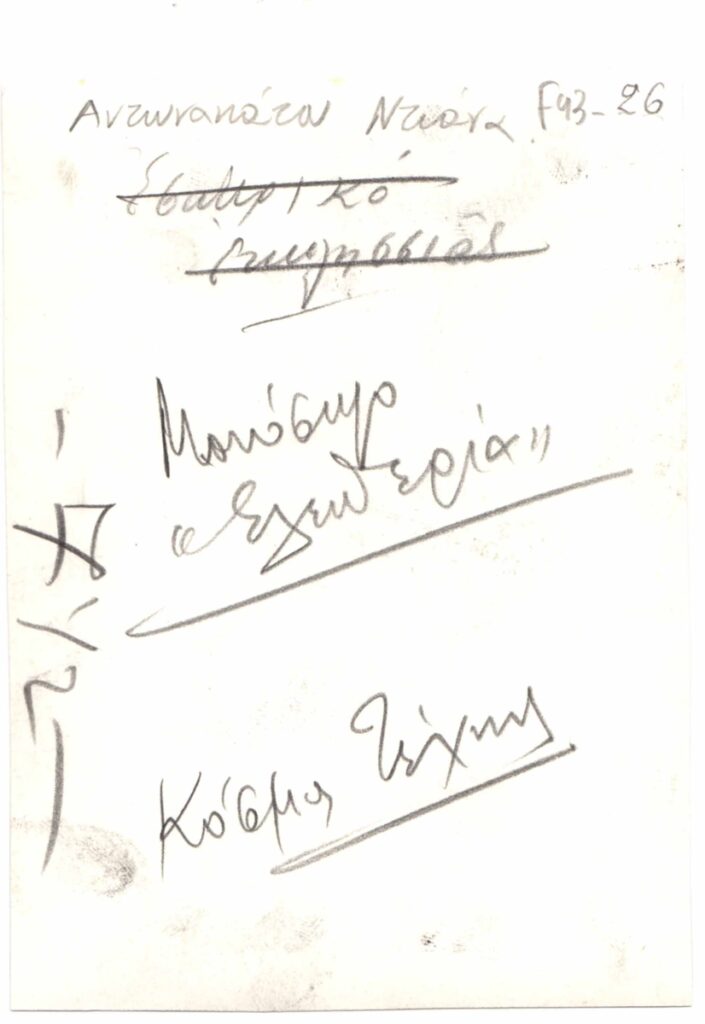 Αντωνακάτου Ντιάνα F43-26
Εσωτερικό
Εκκλησσιάς
Μονόστηλο
«Ελευθερία»
Κόσμος Τέχνης